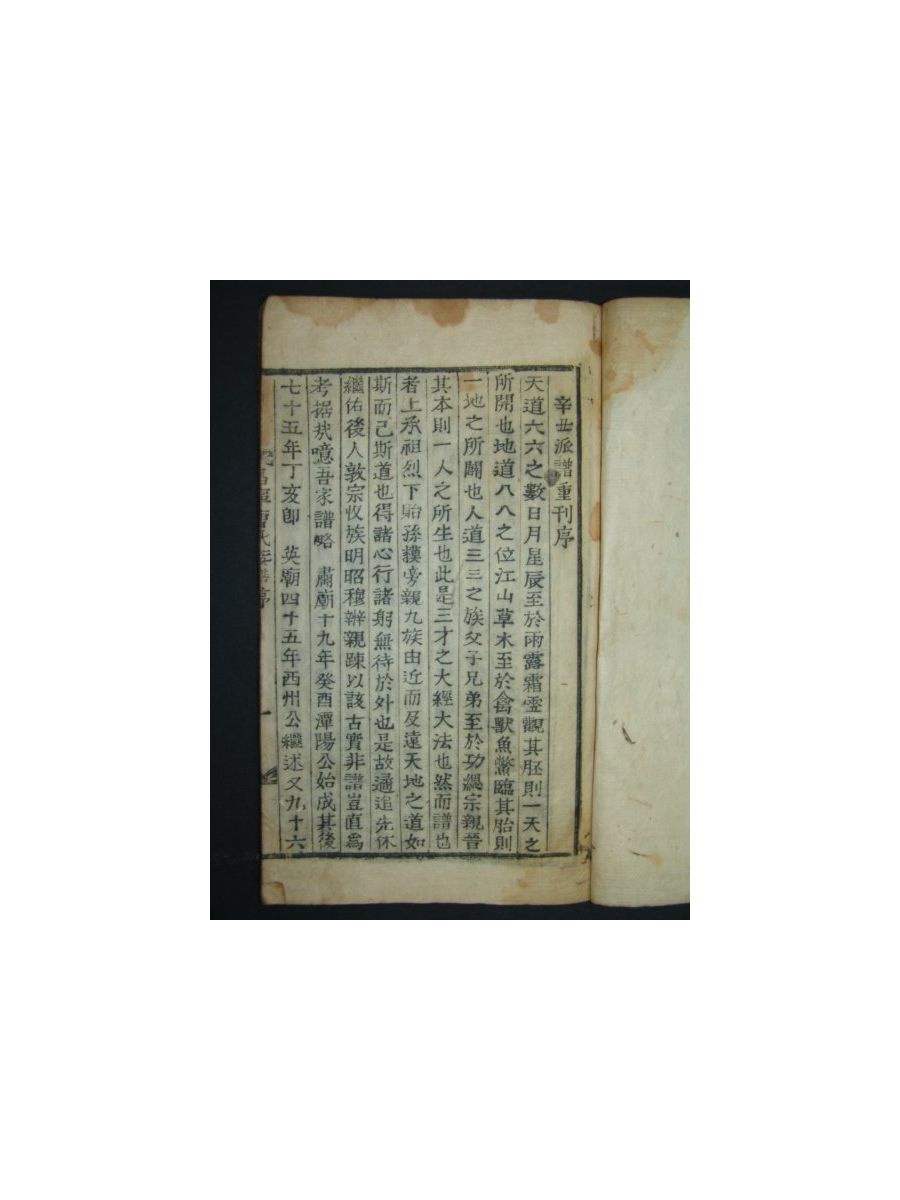 辛丑派譜重刊序
天道六六之數日月星辰至於雨露霜雪觀其胚則一天之
所開也地道八八之位江山草木至於禽獸魚鱉臨其胎則
一地之所闢也人道三三之族父子兄弟至於功緦宗親晉
其本則一人之所生也此是三才之大經大法也然而譜也
者上承祖烈下貽孫謨旁親九族由近而及遠天地之道如
斯而已斯道也得諸心行諸躬無待於外也是故遹追先休
繼佑後人敦宗收族明昭穆辨親踈以該古實非譜豈直爲
考据㦲噫吾家譜略 肅廟十九年癸酉潭陽公始成其後
七十五年丁亥卽 英廟四十五年西州公繼述又九十六
曺氏 譜序 一